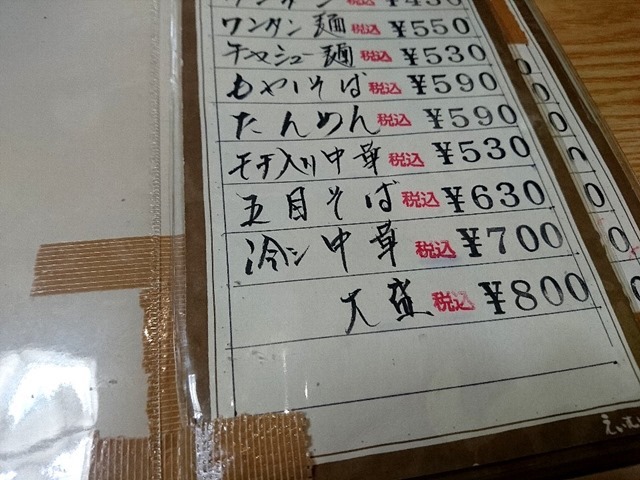 ワンタン 税込 ¥450
ワンタン麺 税込 ¥550
チャシュー麺 税込 ¥530
もやしそば 税込 ¥590
たんめん 税込 ¥590
モチ入り中華 税込 ¥530
五目そば 税込 ¥630
冷シ中華 税込 ¥700
大盛 税込 ¥800